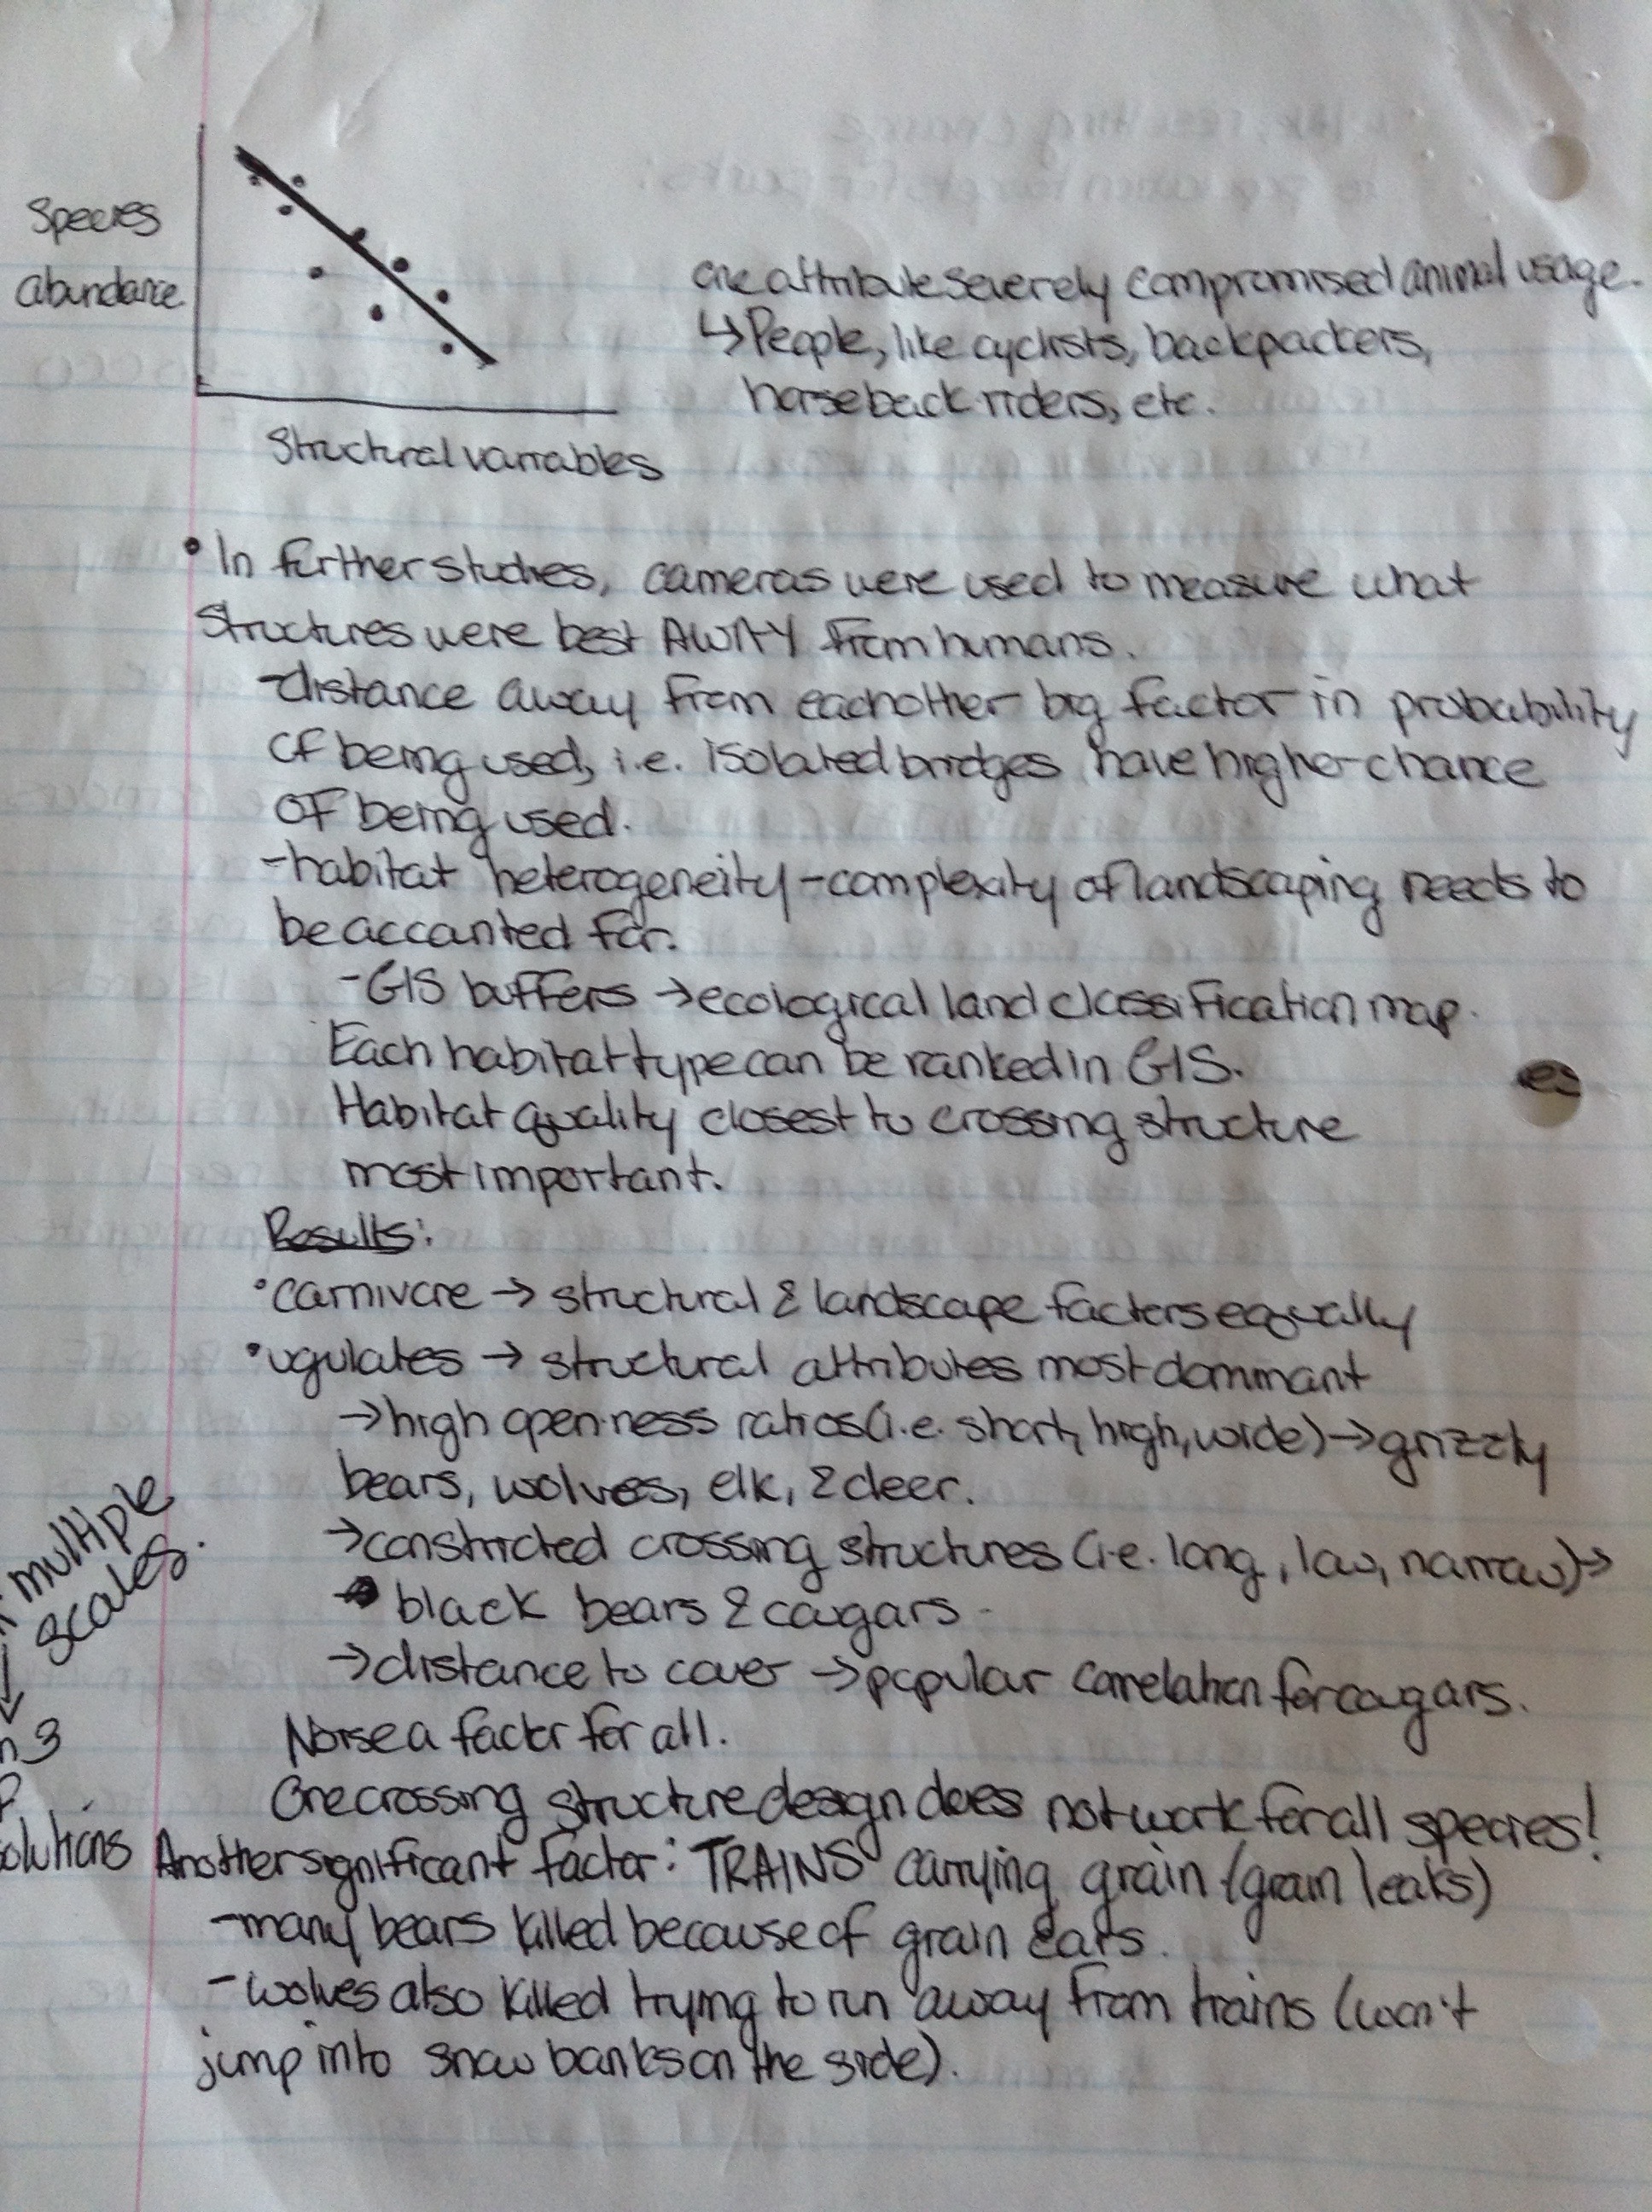 Species
abundance
Structural variables
one attribute severely compromised animal usage.
↳ People, like cyclists, backpackers,
horseback riders, etc.
• In further studies, cameras were used to measure what
structures were best AWAY from humans.
- distance away from eachother big factor in probability
of being used, i.e. isolated bridges have higher chance
of being used.
- habitat heterogeneity - complexity of landscaping needs to
be accounted for.
- GIS buffers → ecological land classification map.
Each habitat type can be ranked in GIS.
Habitat quality closest to crossing structure
most important.
Results:
• carnivore → structural & landscape factors equally
• ugulates → structural attributes most dominant
→ high openness ratios (i.e. short, high, wide) → grizzly
bears, wolves, elk, & deer.
→ constricted crossing structures (i.e. long, low, narrow) →
black bears & cougars.
→ distance to cover → popular correlation for cougars.
Noise a factor for all.
One crossing structure design does not work for all species!
Another significant factor: TRAINS carrying grain (grain leaks)
- many bears killed because of grain cars.
- wolves also killed trying to run away from trains (won't
jump into snow banks on the side).
multiple
scales.
↓
3